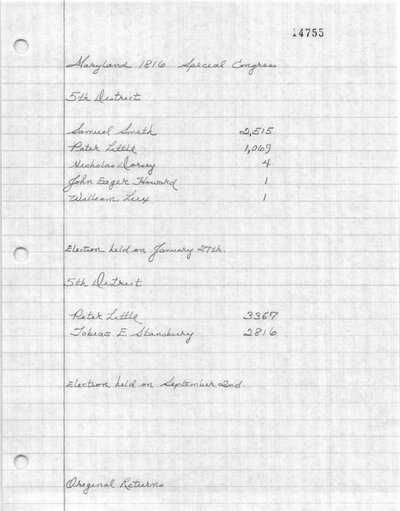 14755
Maryland 1816 Special Congress
5th District
Samuel Smith 2,515
Peter Little 1,069
Nicholas Dorsey 4
John Eager Howard 1
William Lux 1
Election held on January 27th.
5th District
Peter Little 3367
Tobias E. Stansbury 2816
Election held on September 2nd.
Original Returns